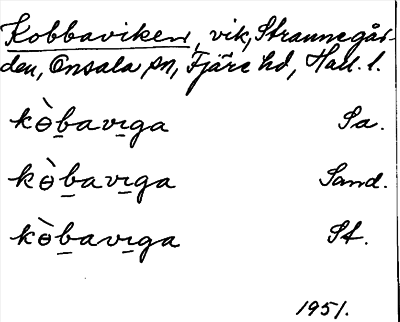 Kobbaviken, vik, Straunegår-
den, Onsala sn, Fjäre hd, Hall. l.
kɵ̀baviga Sa.
kɵ̀baviga Sand.
kɵ̀baviga St.
1951.